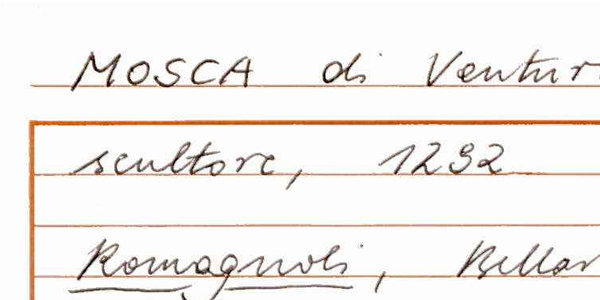 MOSCA di Ventur
scultore, 1292
Romagnoli, Bellar